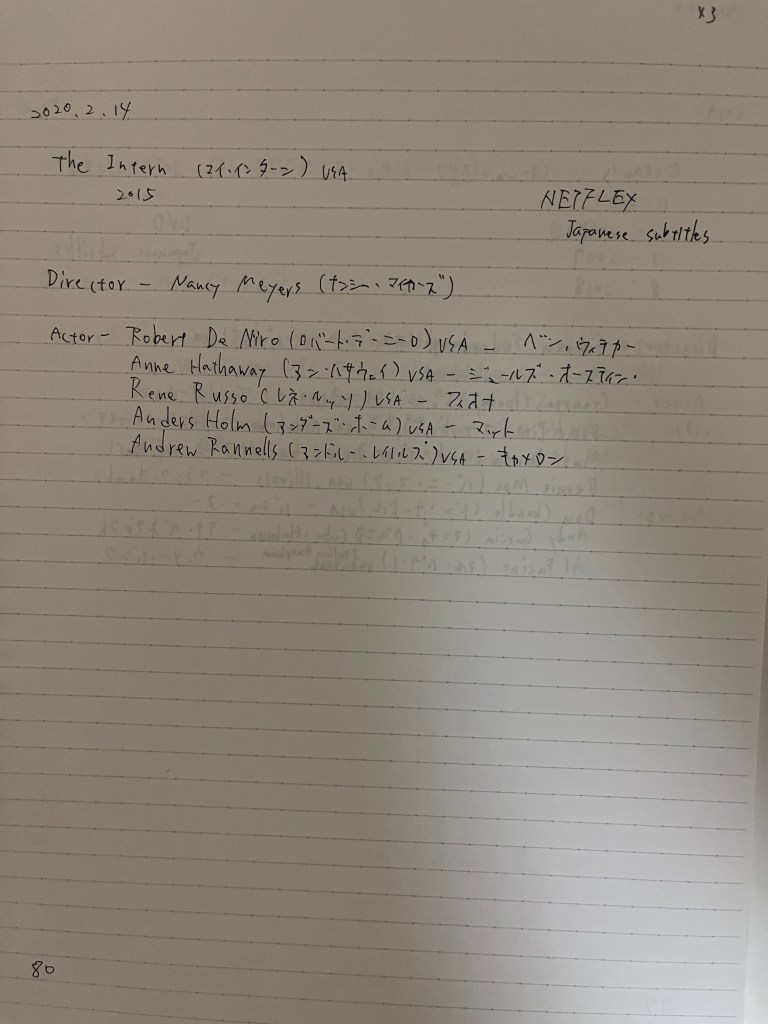 ×3
2020.2.14
The Intern (マイ・インターン) USA
2015
NETFLEX
Japanese subtitles
Director - Nancy Meyers (ナンシー・マイヤーズ)
Actor - Robert De Niro (ロバート・デ・ニーロ) USA - ベン・ウィテカー
Anne Hathaway (アン・ハサウェイ) USA - ジュールズ・オースティン・
Rene Russo (レネ・ルッソ) USA - フィオナ
Anders Holm (アンダーズ・ホーム) USA - マット
Andrew Rannells (アンドルー・レイルズ) USA - キャメロン
80